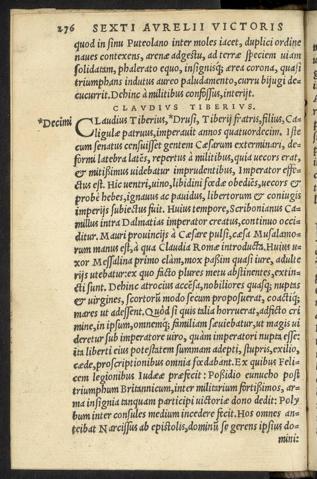 276 SEXTI AVRELII VICTORIS
quod in sinu Puteolano inter moles iacet, duplici ordine
naues contexens, arenæ adgestu, ad terræ speciem uiam
solidatam, phalerato equo, insignisq́; ærea corona, quasi
triumphans indutus aureo paludamento, curru biiugi de-
cucurrit. Dehinc à militibus confossus, interijt.
CLAVDIVS TIBERIVS.
*Decimi
CLaudius Tiberius, *Drusi, Tiberij fratris, filius, Ca-
ligulæ patruus, imperauit annos quatuordecim. Iste
cum senatus censuisset gentem Cæsarum exterminari, de-
formi latebra latẽs, repertus à militibus, quia uecors erat,
& mitissimus uidebatur imprudentibus, Imperator effe-
ctus est. Hic uentri, uino, libidini fœdæ obediẽs, uecors &
propè hebes, ignauus ac pauidus, libertorum & coniugis
imperijs subiectus fuit. Huius tempore, Scribonianus Ca-
millus intra Dalmatias imperator creatus, continuo occi-
ditur. Mauri prouincijs à Cæsare pulsi, cæsa Musulamo-
rum manus est, à qua Claudia Romæ introducta. Huius u-
xor Messalina primo clàm, mox paßim quasi iure, adulte
rijs utebatur: ex quo facto plures metu abstinentes, extin-
cti sunt. Dehinc atrocius accẽsa, nobiliores quasq́; nuptas
& uirgines, scortorũ modo secum proposuerat, coactiq́;
mares ut adessent. Quòd si quis talia horruerat, adficto cri
mine, in ipsum, omnemq́; familiam sæuiebatur, ut magis ui
deretur sub imperatore uiro, quàm imperatori nupta esse:
ita liberti eius potestatem summam adepti, stupris, exilio,
cæde, proscriptionibus omnia fœdabant. Ex quibus Feli-
cem legionibus Iudææ præfecit: Poßidio eunucho post
triumphum Britannicum, inter militarium fortißimos, ar-
ma insignia tanquam participi uictoriæ dono dedit: Poly
bium inter consules medium incedere fecit. Hos omnes an-
teibat Narcissus ab epistolis, dominũ se gerens ipsius do-
mini: